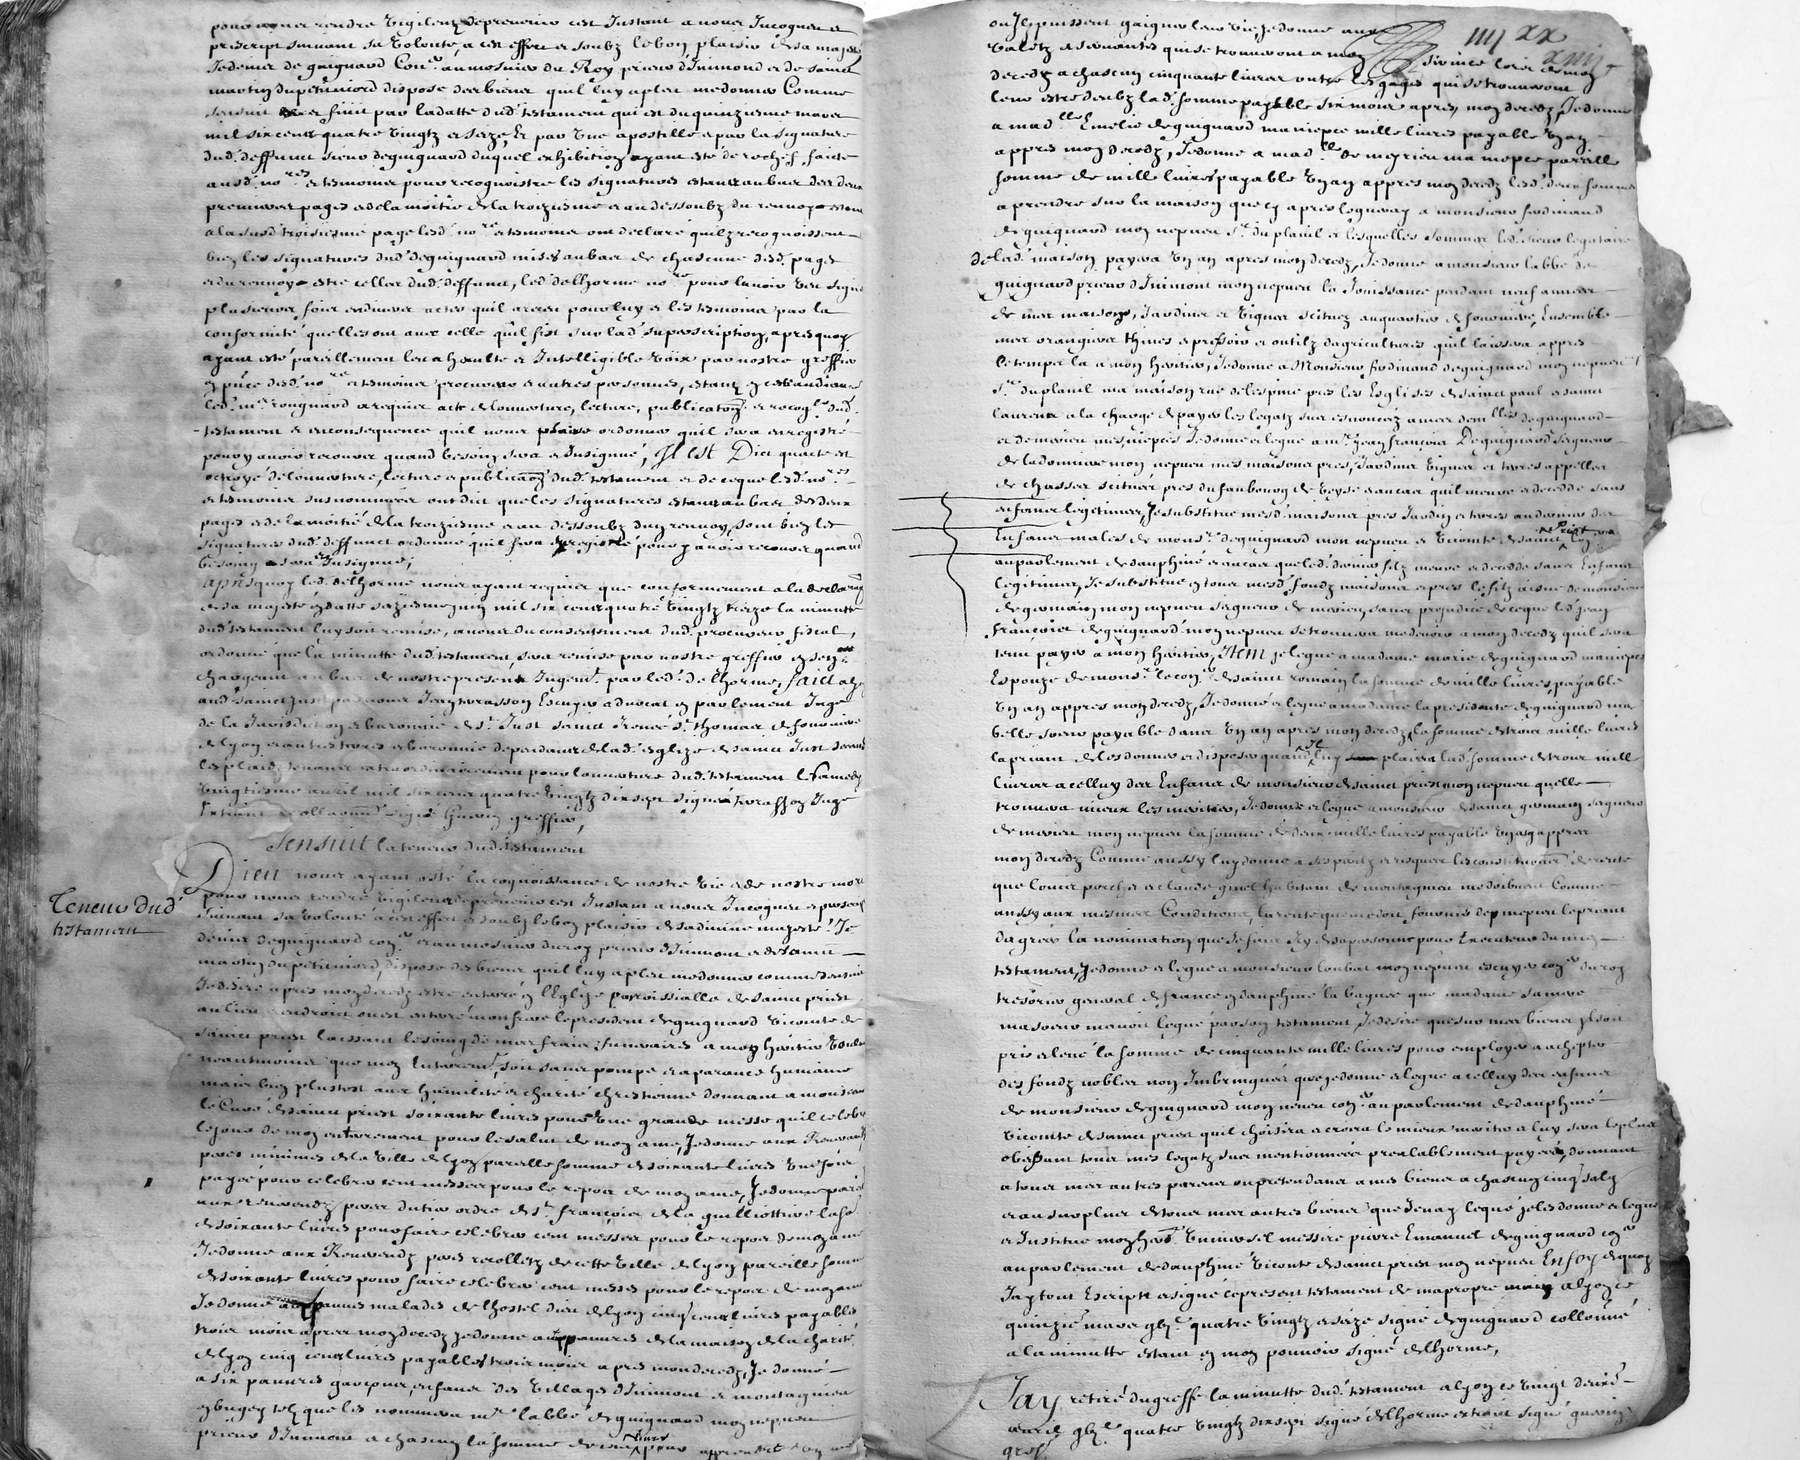 pour nous rendre vigilent depreuenir cest Instant a nous Incogneu et
prescript suiuant sa volonté, a cet effect et soubz le bon plaisir de sa majesté
Je denis de guignard Con.er aumosnier du Roy prieur d'Inimond et de sainct
martin du petit niord dispose des biens quil luy a pleu me donner Comme
sensuit et finit par la datte dud. testament qui est du quinziesme mars
mil six cens quatre vingtz et seize, Et par une apostille et par la signature
dud. deffunct sieur deguignard duquel exhibition ayant esté de rechef faicte
ausd. no.res et tesmoins pour recognoistre les signatures estant au bas des deux
premieres pages et de la moitié de la troiziesme et au dessoubz du renuoy estant
a la susd. troisiesme page lesd. no.re et tesmoins ont declaré quilz recognoissent
bien les signatures dud. deguignard mises au bas de chascune desd. pages
et du renuoy estre celles dud. deffunct, led. delhorme no.re pour lauoir veu signer
plusieurs fois en diuers actes quil a receu pour luy et les tesmoins par la
conformité quelles ont aux celle quil fist sur lad. superscription, apres quoy
ayant esté pareillement leu a haulte et Intelligible voix par nostre greffier
en p.nce desd. no.re et tesmoins procureur et autres personnes, estant en cest audiance
led. m.e rougnard a requier acte de louuerture, lecture, publication et recog.e dud.
testament et en consequence quil nous plaise ordonner quil sera enregistré
pour y auoir recours quand besoin sera et Insigniué, Il Est Dict quacte est
octroyé de louuerture, lecture et publicaon dud. testament et de ce que lesd. no.res
et tesmoins susnommées ont dict que les signatures estant au bas des deux
pages et de la moitié de la troiziesme et au dessoubz du renuoy, sont bien les
signatures dud. deffunct ordonne quil sera enregistré pour y auoir recours quand
besoing sera et Insigniué;
Apres quoy led. delhorme nous ayant requier que conformement a la declaraon
de sa majesté en datte du seiziesme juin mil six cens quatre vingtz treize la minutte
dud. testament luy soit remise, auons du consentement dud. procureur fiscal,
ordonne que la minutte dud. testament, sera remise par nostre greffier en sen
chargeant au bas de nostre present Jugem.t par led. delhorme, faict a lyon
aud. sainct Just par nous Jean terrasson Escuyer aduocat en parlement Juge
de la Jurisdiction et baronnie de S.t Just sainct Irenée S.t thomas de fouruiere
de lyon et autres terres et baronnie dependans de lad. eglize de sainct Just seant
les plaids tenans extraordinairement pour louuerture dud. testament le samedy
vingtiesme auril mil six cens quatre vingtz dixsept signé terrasson Juge
Extraict et collaonné signé Guerin greffier,
Sensuit la teneur dud. testament
Teneur dud.
testament
Dieu nous ayant osté la cognoissance de nostre vie et de nostre mort
pour nous rendre vigilens depreuenir cest Instant a nous Incogneu et prescript
suiuant sa volonté a cet effect et soubz le bon plaisir de sa diuine majesté Je
denis deguignard con.er et aumosnier du roy prieur d'Inimont et de sainct
martin du petit niord, dispose des biens quil luy a pleu me donner comme sensuit
Je desire apres mon decedz estre enterré en l'Eglize parroissialle de sainct priest
au lieu et endroict ou est enterré mon frere le president deguignard vicomte de
sainct priest laissant le soing de mes fraix funeraires a mon heritier voulant
neantmoins que mon Enterrem.t soit sans pompe et aparance humaine
mais bien plustost aux humilité et charité chrestienne donnant a monsieur
le Curé de sainct priest soixante liures pour vne grande messe quil celebrera
le jour de mon enterrement pour le salut de mon ame, Je donne aux Reuerendz
peres minimes de la ville de lyon pareille somme de soixante liures vne fois
payée pour celebrer cent messes pour le repos de mon ame, Je donne pareillement
aux reuerendz peres du tier ordre de S.t françois de la guilliottiere la somme
de soixante liures pour faire celebrer cent messes pour le repos de mon ame
Je donne aux Reuerendz peres recolletz de cette ville de lyon pareille somme
de soixante liures pour faire celebrer cent messes pour le repos de mon ame
Je donne aux pauures malades de lhostel dieu de lyon cinq cens liures payables
trois mois apres mon decedz je donne aux pauures de la maison de la charité
de lyon cinq cens liures payables trois mois apres mon decedz, Je donne
a six pauures garçons, enfans des villages d'Inimont et montagnieu
en bugey telz que les nommera m.r labbé deguignard mon nepueu
prieur d'Inimont a chascun la somme de
IIII XX
XIII
ou Ilz puissent gaigner leur vie, Je donne aux
valetz et seruantes qui se trouueront a mon seruice lors de mon
decedz a chascun cinquante liures outre les gages qui se trouueront
leur estre deubz lad. somme payable six mois apres mon decedz, Je donne
a mad.lle Emelie deguignard ma niepce mille liures payable vn an
apprés mon decedz, Je donne a mad.lle de meyrieu ma niepce pareille
somme de mille liures payable vn an apprés mon decedz lesd. deux sommes
a prendre sur la maison que cy apres legueray a monsieur ferdinand
deguignard mon nepueu S.r du planil et lesquelles sommes led. sieur legataire
de lad. maison payera vn an apres mon decedz, Je donne a monsieur labbé de
guignard prieur d'Inimont mon nepueu la Jouissance pendant neuf années
de mes maisons, Jardins et vignes scituez au quartier de fouruiere, Ensemble
mes orangers thines et pressoir et outilz dagricultures quil laissera apprés
le temps la a mon heritier, Je donne a Monsieur ferdinand deguignard mon nepueu
S.r du planil ma maison rue de lespine pres les Eglises de sainct paul et sainct
laurens a la charge de payer les legatz sus enoncéz a mes dem.lles deguignard
et de meirieu mes niepces Je donne et legue a m.r Jean françois Deguignard seigneur
de la donniere mon nepueu mes maisons prés, Jardins vignes et terres appellez
de chasser scituez pres du faubourg de veyse et au cas quil meure et decedde sans
enfans legitimes, Je substitue mesd. maisons pres Jardin et terres au dernier des
Enfans males de mons.r deguignard mon nepueu et vicomte de sainct priest con.er
au parlement de dauphiné et au cas que led. dernier filz meure et decedde sans Enfans
legitimes, Je substitue en tous mesd. fondz maisons et pres le filz aisné de monsieur
de germain mon nepueu seigneur de meirieu, sans prejudice de ce que led. jean
françois deguignard mon nepueu se trouuera me deuoir a mon decedz quil sera
tenu payer a mon heritier, Item je legue a madame marie deguignard ma niepce
Espouze de mons.r lecon.er de sainct romain la somme de mille liures, payable
vn an apprés mon decedz, Je donne et legue a madame la presidente deguignard ma
belle soeur payable dans vn an apres mon decedz, la somme de trois mille liures
la priant de les donner et disposer quand Il luy plaira lad. somme de trois mille
liures a celluy des Enfans de monsieur de sainct priest mon nepueu quelle
trouuera mieux les meriter, Je donne et legue a monsieur de sainct germain seigneur
de meirieu mon nepueu la somme de deux mille liures payable vn an apprés
mon decedz Comme aussy luy donne a ses perilz et risques les constitutions de rente
que louis perche et claude guel habitans de montagnieu me doibuent Comme
aussy aux mesmes Conditions, la rente que me doit
dagréer la nomination que Je fais Icy de sa personne pour Executeur du mien
testament, Je donne et legue a monsieur loubat mon nepueu escuyer con.er du roy
tresorier general de france en dauphiné la bague que madame sa mere
ma soeur mauoit legué par son testament, Je desire que sur mes biens Il soit
pris et leué la somme de cinquante mille liures pour employer a achepter
des fondz nobles non Imbringués que je donne et legue a celluy des enfans
de monsieur deguignard mon neueu con.er au parlement de dauphiné
vicomte de sainct priest quil choisira et croira le mieux meriter et luy sera le plus
obeissant tous mes legatz sus mentionnées prealablement payéz, donnant
a tous mes autres parens ou pretendans a mes biens a chascung cinq solz
et au surplus de tous mes autres biens que Je nay legué je les donne et legue
et Institue mon her.r vniuersel messire pierre Emanuel deguignard con.er
au parlement de dauphiné vicomte de sainct priest mon nepueu En foy de quoy
Jay tout Escript et signé le present testament de ma propre main, a lyon ce
quinzie mars gbj.c quatre vingtz et seize signé deguignard collonné
a la minutte estant en mon pouuoir signé delhorme,
Jay retiré du greffe la minutte dud. testament a lyon ce vingt deuxe
auril gbj.c quatre vingtz dixsept signé delhorme extraict signé guerin
gref.